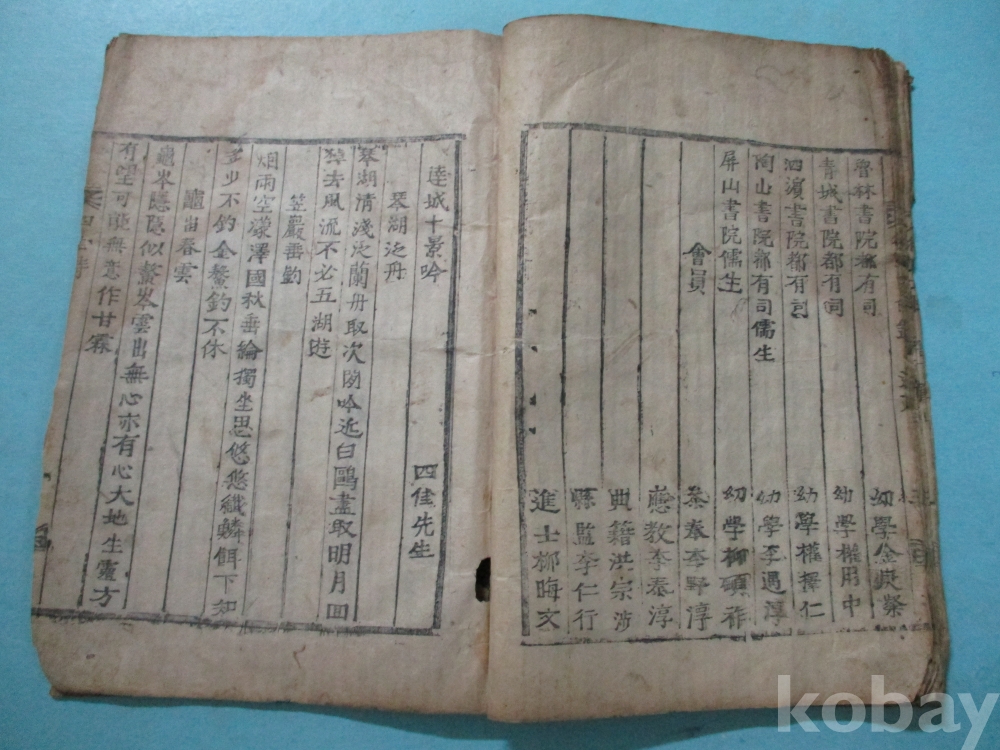 魯林書院都有司 幼學金㷗榮
青城書院都有司 幼學權用中
泗濱書院都有司 幼學權擇仁
陶山書院都有司儒生 幼學李遇淳
屏山書院儒生 幼學柳碩祚
會員 叅奉李野淳
應教李泰淳
典籍洪宗涉
縣監李仁行
進士柳晦文
達城十景吟 四佳先生
琴湖泛舟
琴湖清淺泛蘭舟取次閑吟近白鷗盡取明月回
棹去風流不必五湖遊
笠巖垂釣
烟雨空濛澤國秋垂綸獨坐思悠悠纖鱗餌下知
多少不釣金鰲釣不休
龜岫春雲
龜岑隱隱似鰲岑雲出無心亦有心大地生靈方
有望可能無意作甘霖
kobay